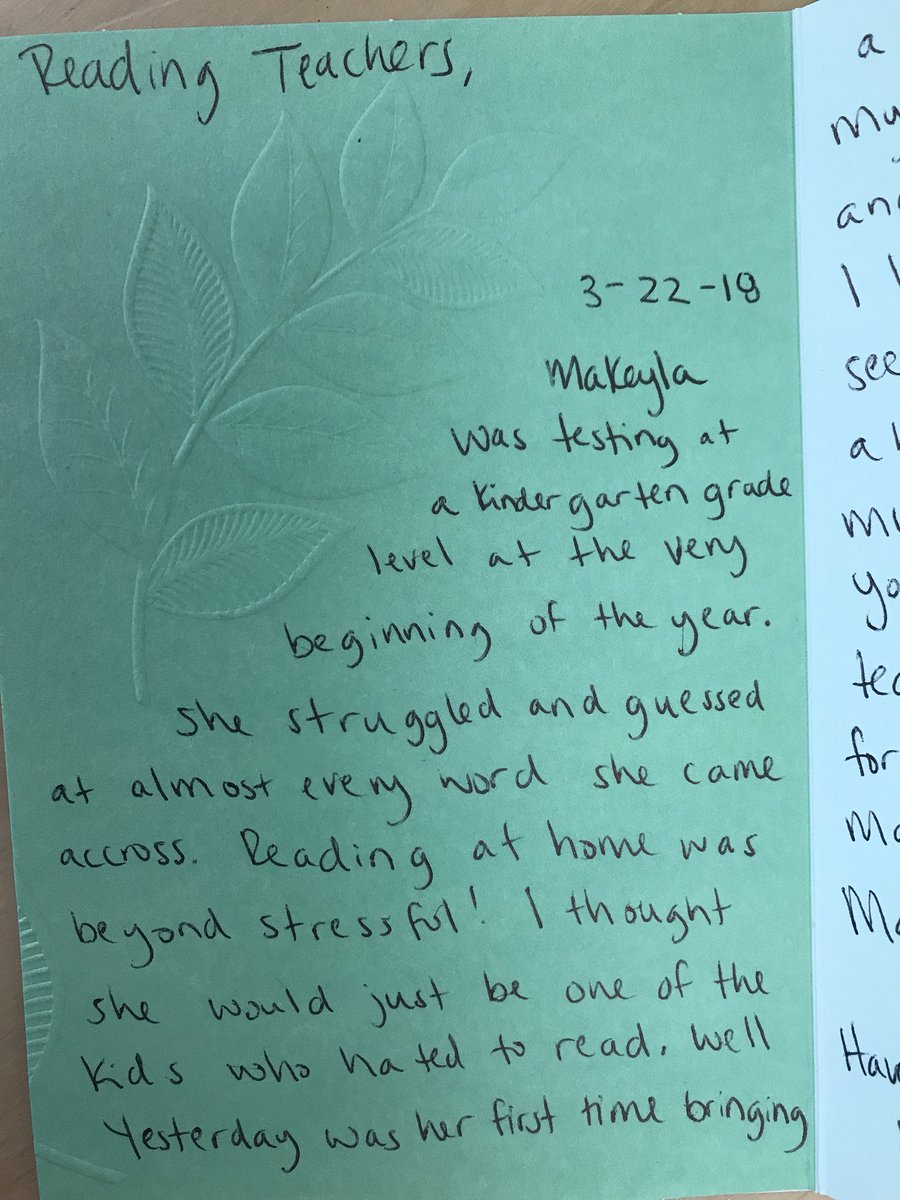 Reading Teachers,
3-22-18
Makeyla
was testing at
a kindergarten grade
level at the very
beginning of the year.
She struggled and guessed
at almost every word she came
accross. Reading at home was
beyond stressful! I thought
she would just be one of the
kids who hated to read. Well
Yesterday was her first time bringing
a
and
I
see
a
for